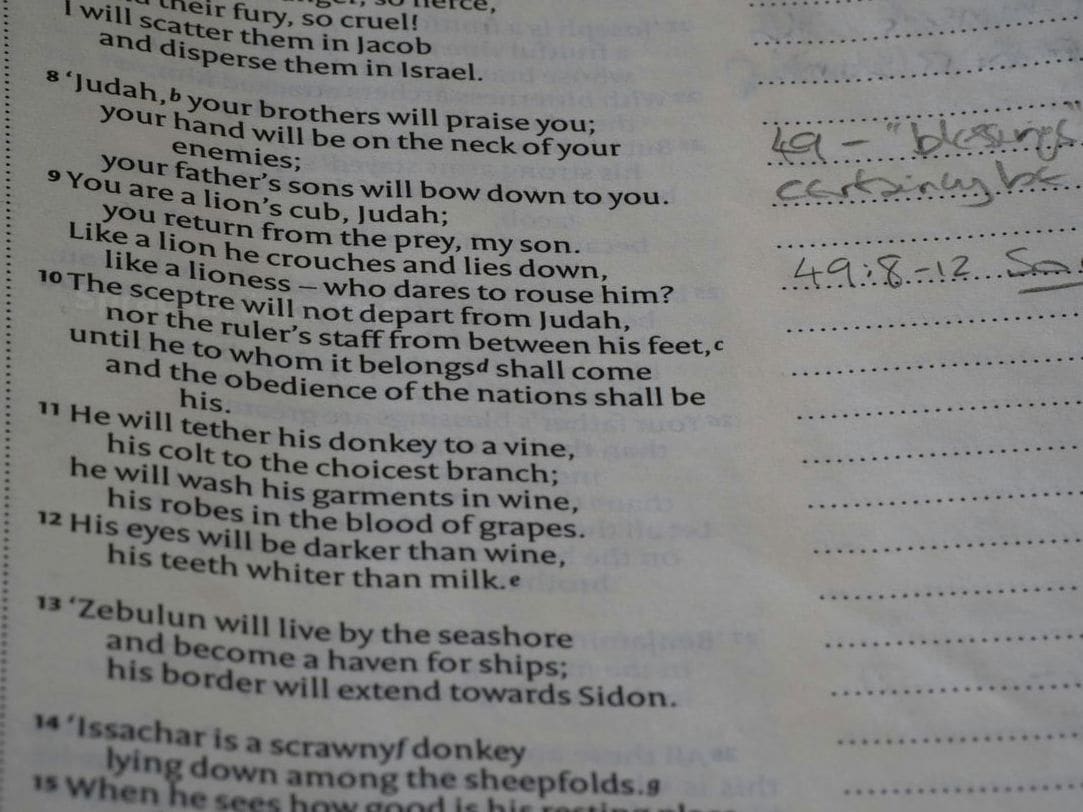 their fury, so cruel!
I will scatter them in Jacob
and disperse them in Israel.
8 ‘Judah,b your brothers will praise you;
your hand will be on the neck of your
enemies;
your father’s sons will bow down to you.
9 You are a lion’s cub, Judah;
you return from the prey, my son.
Like a lion he crouches and lies down,
like a lioness – who dares to rouse him?
10 The sceptre will not depart from Judah,
nor the ruler’s staff from between his feet,c
until he to whom it belongsd shall come
and the obedience of the nations shall be
his.
11 He will tether his donkey to a vine,
his colt to the choicest branch;
he will wash his garments in wine,
his robes in the blood of grapes.
12 His eyes will be darker than wine,
his teeth whiter than milk.e
13 ‘Zebulun will live by the seashore
and become a haven for ships;
his border will extend towards Sidon.
14 ‘Issachar is a scrawnyf donkey
lying down among the sheepfolds.g
15 When he sees how good is his resting place
49 – "blessings"
certainly be
49:8-12